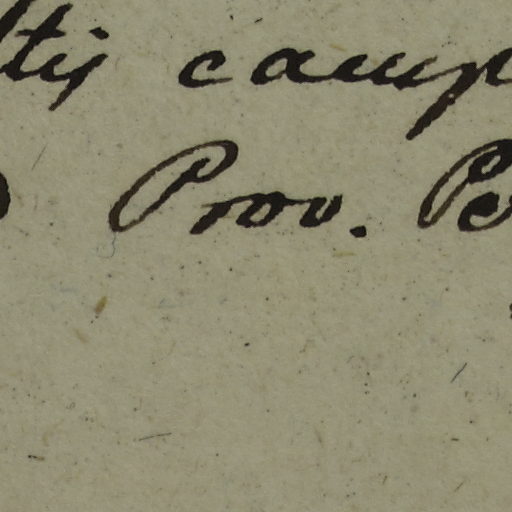 ltis camp
Prov. Pe